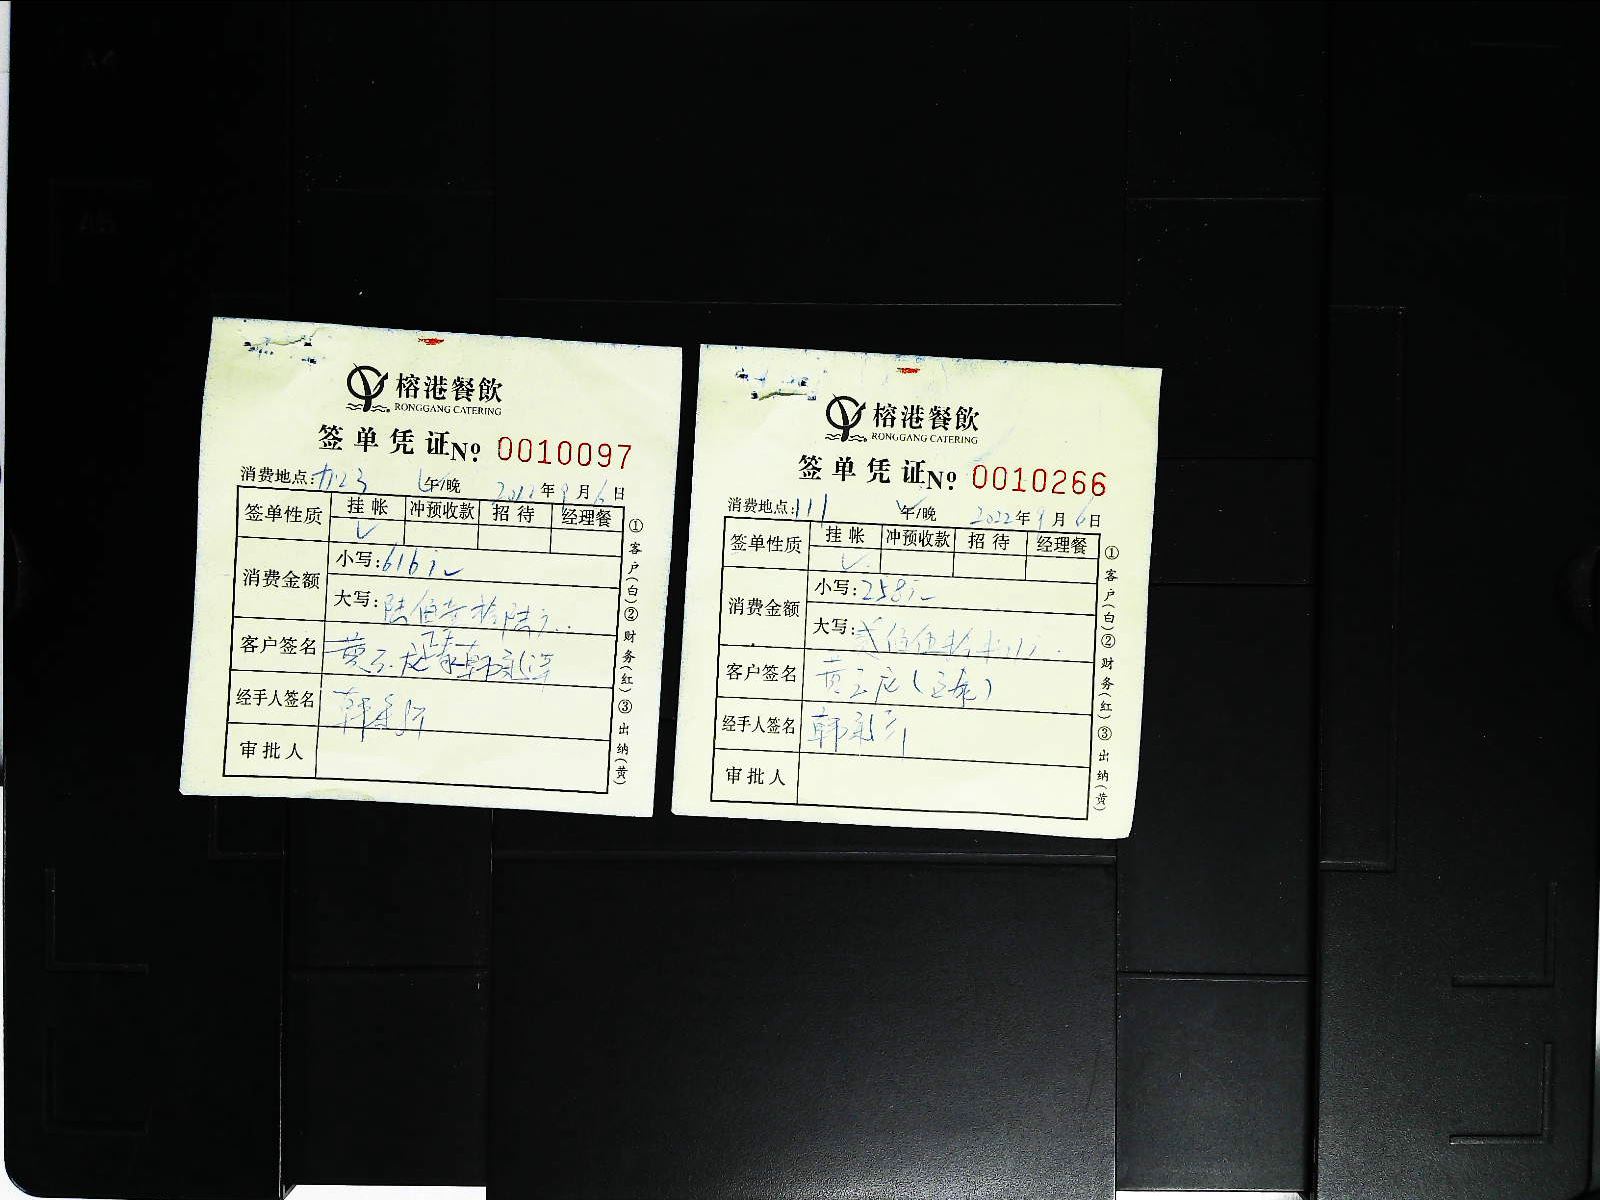 榕港餐飲
RONGGANG CATERING
签单凭证No 0010097
消费地点: 午/晚 2022年9月6日
签单性质 挂帐 冲预收款 招待 经理餐
✓
消费金额 小写:616元
大写:陆佰壹拾陆元
客户签名
经手人签名
审批人
①客户(白)②财务(红)③出纳(黄)
榕港餐飲
RONGGANG CATERING
签单凭证No 0010266
消费地点:111 午/晚 2022年9月6日
签单性质 挂帐 冲预收款 招待 经理餐
✓
消费金额 小写:258元
大写:贰佰伍拾捌元
客户签名
经手人签名
审批人
①客户(白)②财务(红)③出纳(黄)